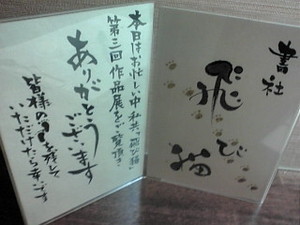 書社
飛び猫
本日はお忙しい中 私共「飛び猫」
第三回作品展をご覧頂き
ありがとうございます
皆様の を残して
いただけたら幸いです